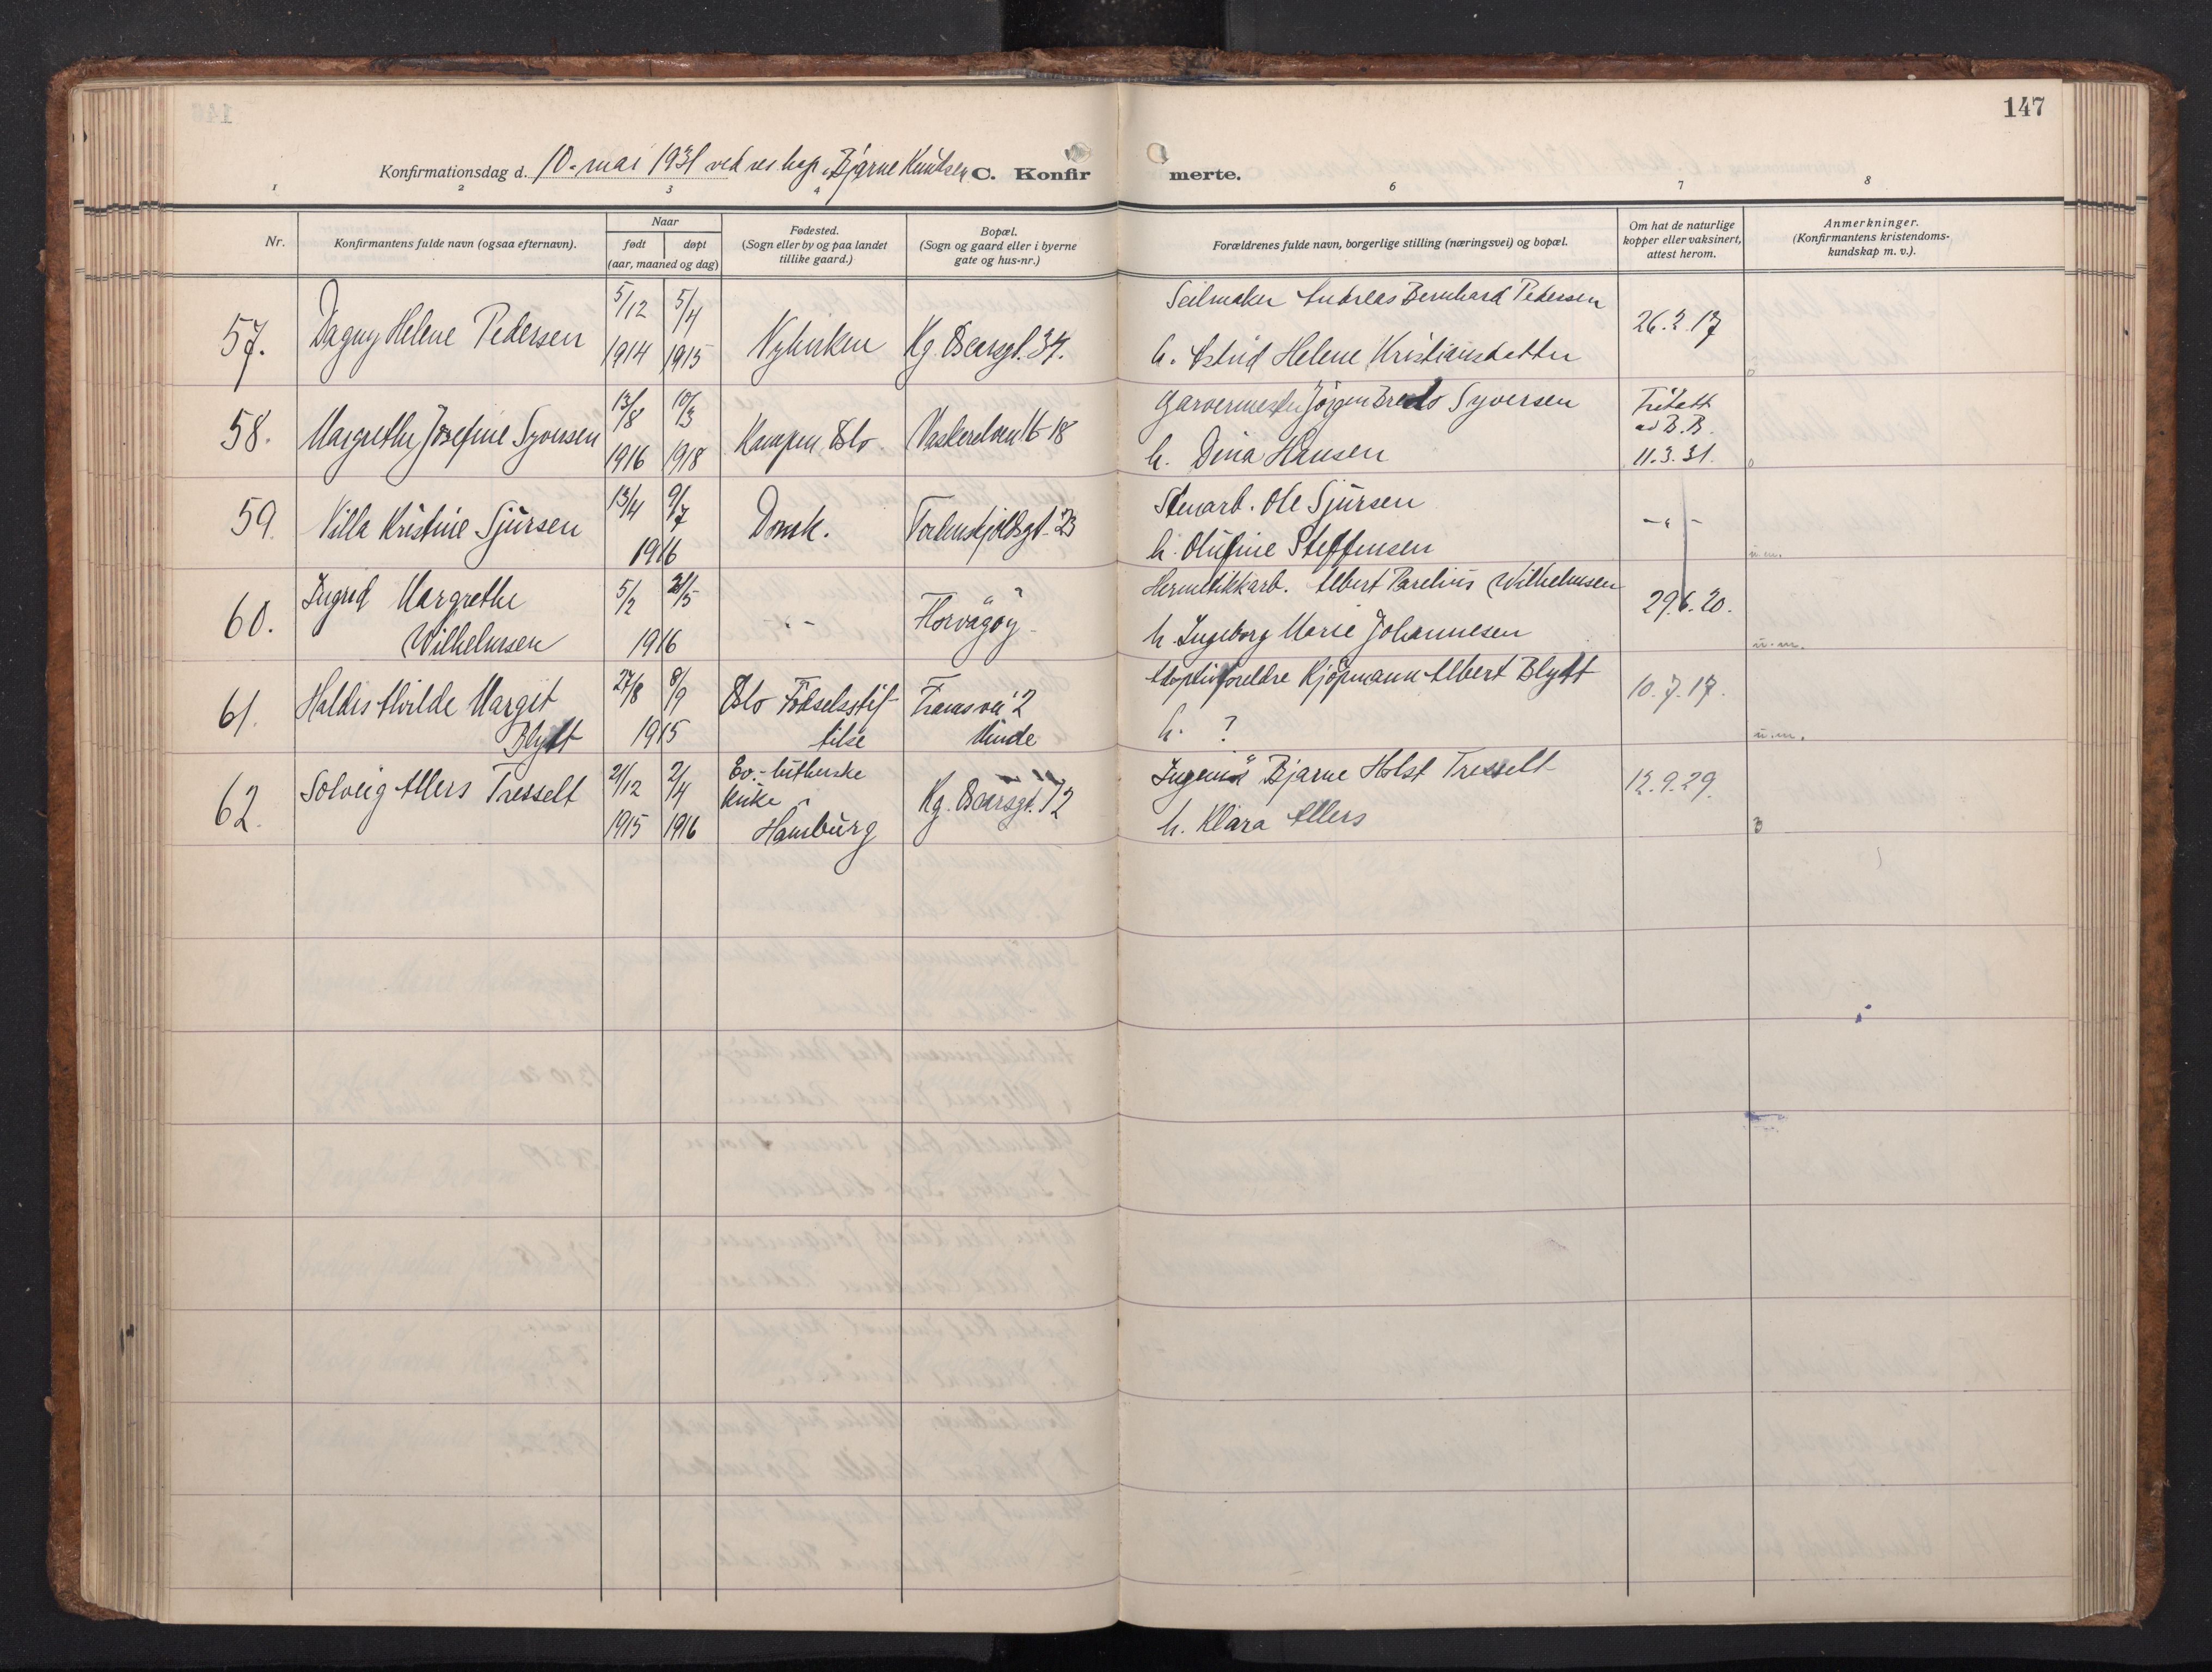 147
Konfirmationsdag d. 10. mai 1931 ved res. kap. Bjarne Knudsen C. Konfirmerte.
1 2 3 4 6 7 8
Nr.
Konfirmantens fulde navn (ogsaa efternavn).
Naar
født døpt
(aar, maaned og dag)
Fødested.
(Sogn eller by og paa landet
tillike gaard.)
Bopæl.
(Sogn og gaard eller i byerne
gate og hus-nr.)
Forældrenes fulde navn, borgerlige stilling (næringsvei) og bopæl.
Om hat de naturlige
kopper eller vaksinert,
attest herom.
Anmerkninger.
(Konfirmantens kristendoms-
kundskap m. v.).
57. Dagny Helene Pedersen 5/12 1914 5/4 1915 Nykirken Kg. Oscarsgt. 34.
Seilmaker Andreas Bernhard Pedersen
h. Astrid Helene Kristiansdatter
26.2.17
58. Margrethe Josefine Syversen 13/8 1916 10/3 1918 Kampen, Oslo. Vaskerelven 16-18
Garvermester Jörgen Bredo Syversen
h. Dina Hansen
Fritatt
av B.B.
11.3.31.
59. Villa Kristine Sjursen 13/4 9/7 1916 Domk. Tordenskjoldsgt. 23
Stenarb. Ole Sjursen
h. Olufine Steffensen
-"-
u.m.
60. Ingrid Margrethe
Wilhelmsen
5/2 21/5 1916 -"- Florvågöy
Hermetikkarb. Albert Parelius Wilhelmsen
h. Ingeborg Marie Johannesen
29.6.20.
u.m.
61. Haldis Alvilde Margit
Blydt
27/8 8/9 1915 Oslo Födselsstif-
telse
Framsvei 2
Minde
Adoptivforeldre Kjöpmann Albert Blydt
h. ?
10.7.17.
u.m.
62. Solveig Allers Tresselt 21/12 1915 2/4 1916
Ev.-lutherske
kirke
Hamburg
Kg. Oscarsgt. 72
Ingeniör Bjarne Holst Tresselt
h. Klara Allers
12.9.29.